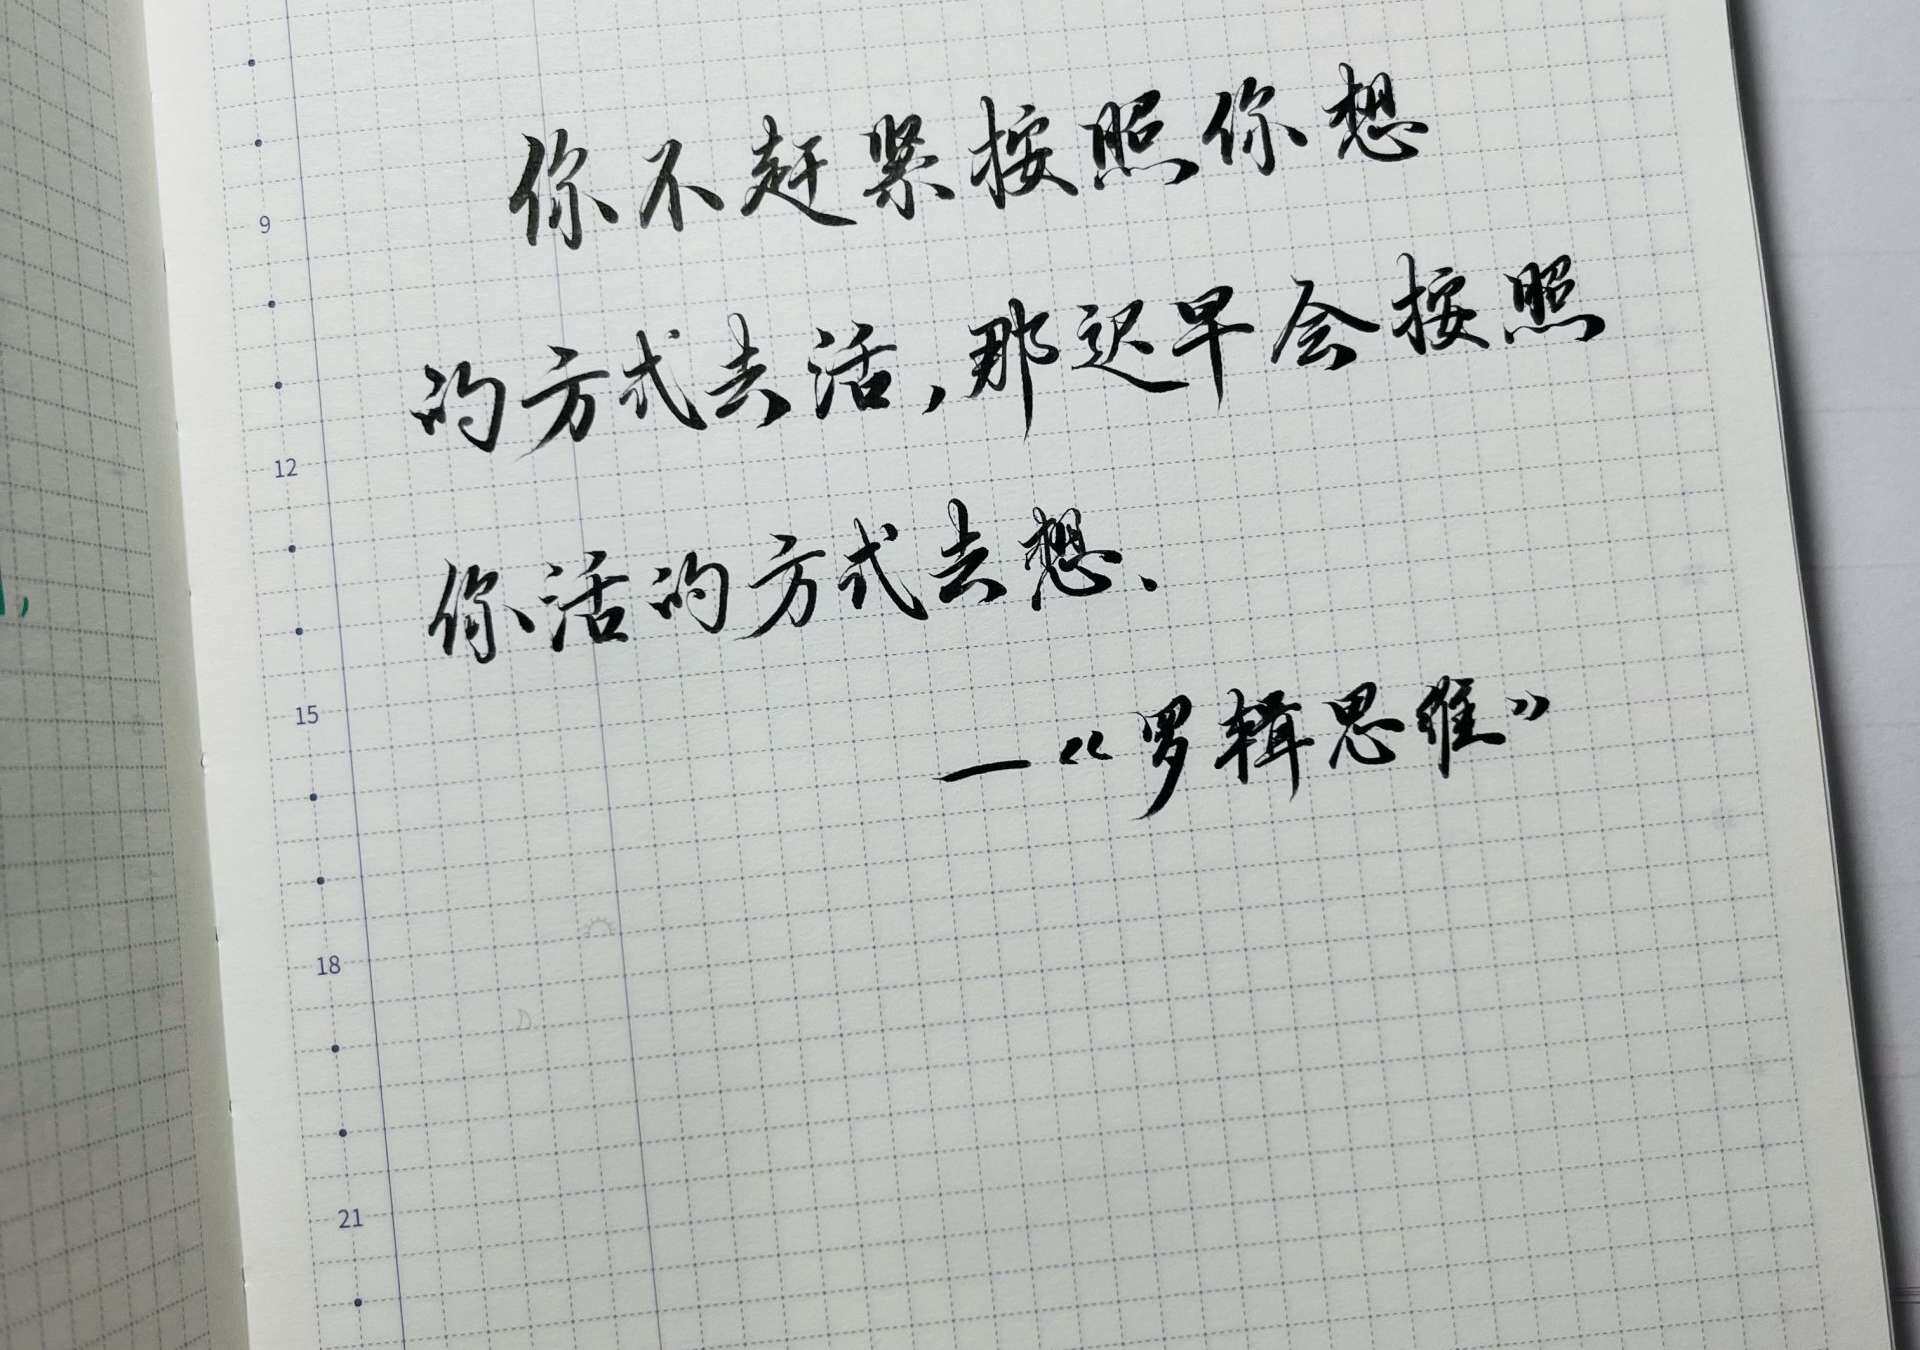 你不赶紧按照你想
的方式去活,那迟早会按照
你活的方式去想、
—《罗辑思维》
9
12
15
18
21